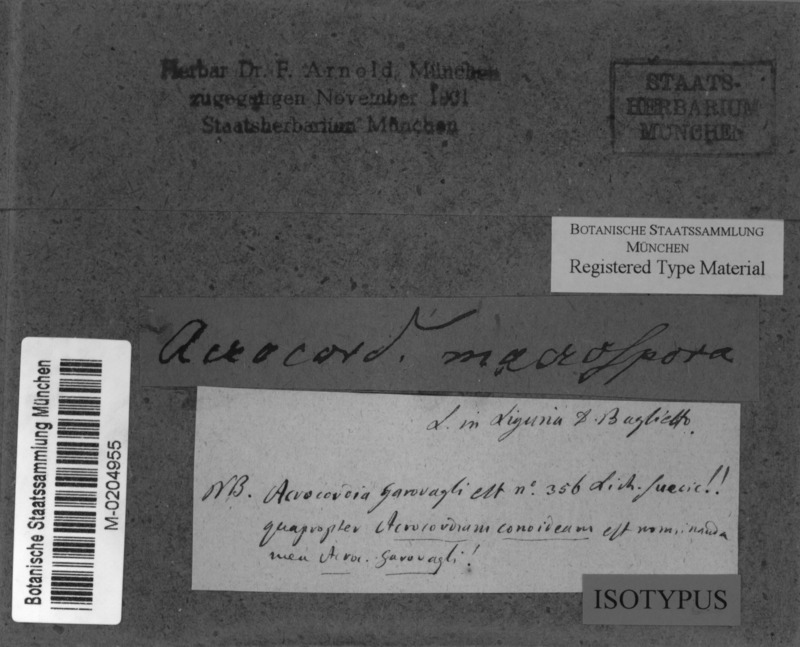 Herbar Dr. F. Arnold, München
zugegangen November 1901
Staatsherbarium München
STAATS-
HERBARIUM
MÜNCHEN
BOTANISCHE STAATSSAMMLUNG
MÜNCHEN
Registered Type Material
Acrocord. macrospora
L. in Liguria D. Baglietto.
NB. Acrocordia Garovagli est nº. 356 Lich. suecic!!
quapropter Acrocordiam conoideam est nominanda
mea Acroc. Garovagli!
ISOTYPUS
Botanische Staatssammlung München
M-0204955